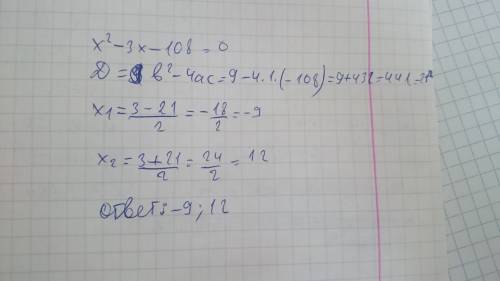 x² - 3x - 108 = 0
D = b² - 4ac = 9 - 4·1·(-108) = 9 + 432 = 441 = 21²
x1 = 3 - 21 / 2 = - 18 / 2 = -9
x2 = 3 + 21 / 2 = 24 / 2 = 12
ответ: -9; 12